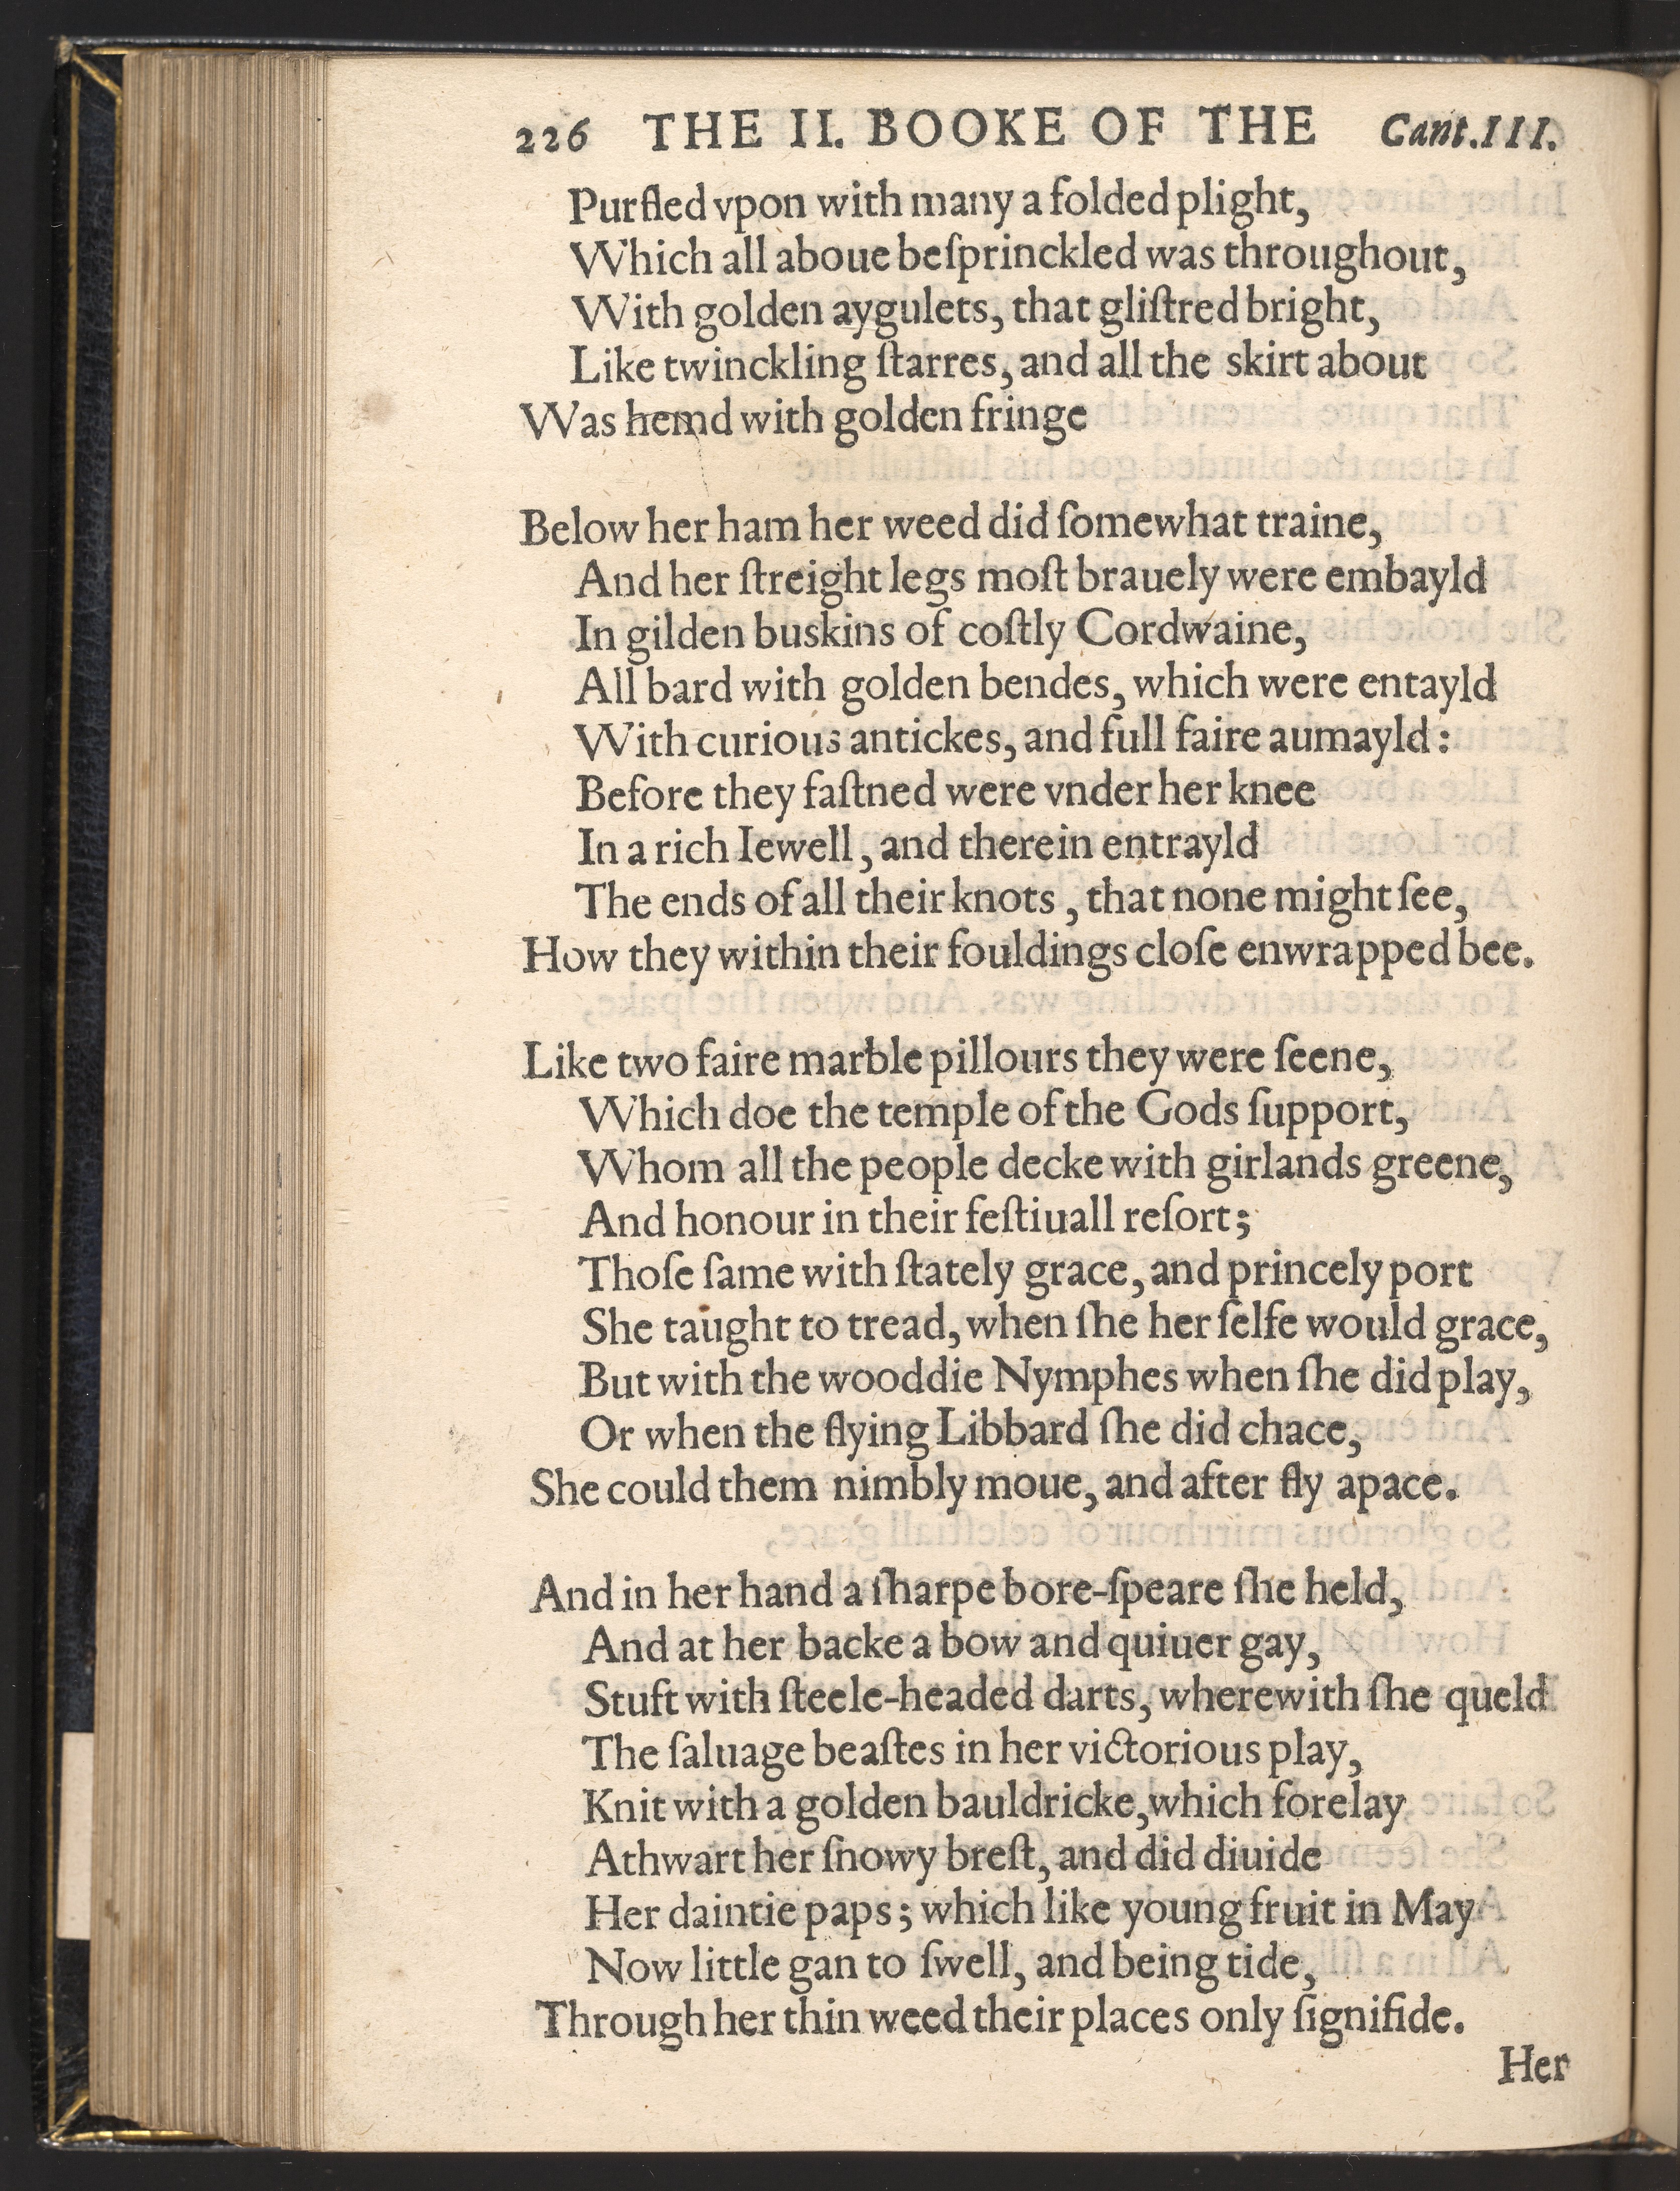 226 THE II. BOOKE OF THE Cant.III.
Purfled vpon with many a folded plight,
Which all aboue beſprinckled was throughout,
With golden aygulets, that gliſtred bright,
Like twinckling ſtarres, and all the skirt about
Was hemd with golden fringe
Below her ham her weed did ſomewhat traine,
And her ſtreight legs moſt brauely were embayld
In gilden buskins of coſtly Cordwaine,
All bard with golden bendes, which were entayld
With curious antickes, and full faire aumayld:
Before they faſtned were vnder her knee
In a rich Iewell, and therein entrayld
The ends of all their knots, that none might ſee,
How they within their fouldings cloſe enwrapped bee.
Like two faire marble pillours they were ſeene,
Which doe the temple of the Gods ſupport,
Whom all the people decke with girlands greene,
And honour in their feſtiuall reſort;
Thoſe ſame with ſtately grace, and princely port
She taught to tread, when ſhe her ſelfe would grace,
But with the wooddie Nymphes when ſhe did play,
Or when the flying Libbard ſhe did chace,
She could them nimbly moue, and after fly apace.
And in her hand a ſharpe bore-ſpeare ſhe held,
And at her backe a bow and quiuer gay,
Stuft with ſteele-headed darts, wherewith ſhe queld
The ſaluage beaſtes in her victorious play,
Knit with a golden bauldricke, which forelay
Athwart her ſnowy breſt, and did diuide
Her daintie paps; which like young fruit in May
Now little gan to ſwell, and being tide,
Through her thin weed their places only ſignifide.
Her